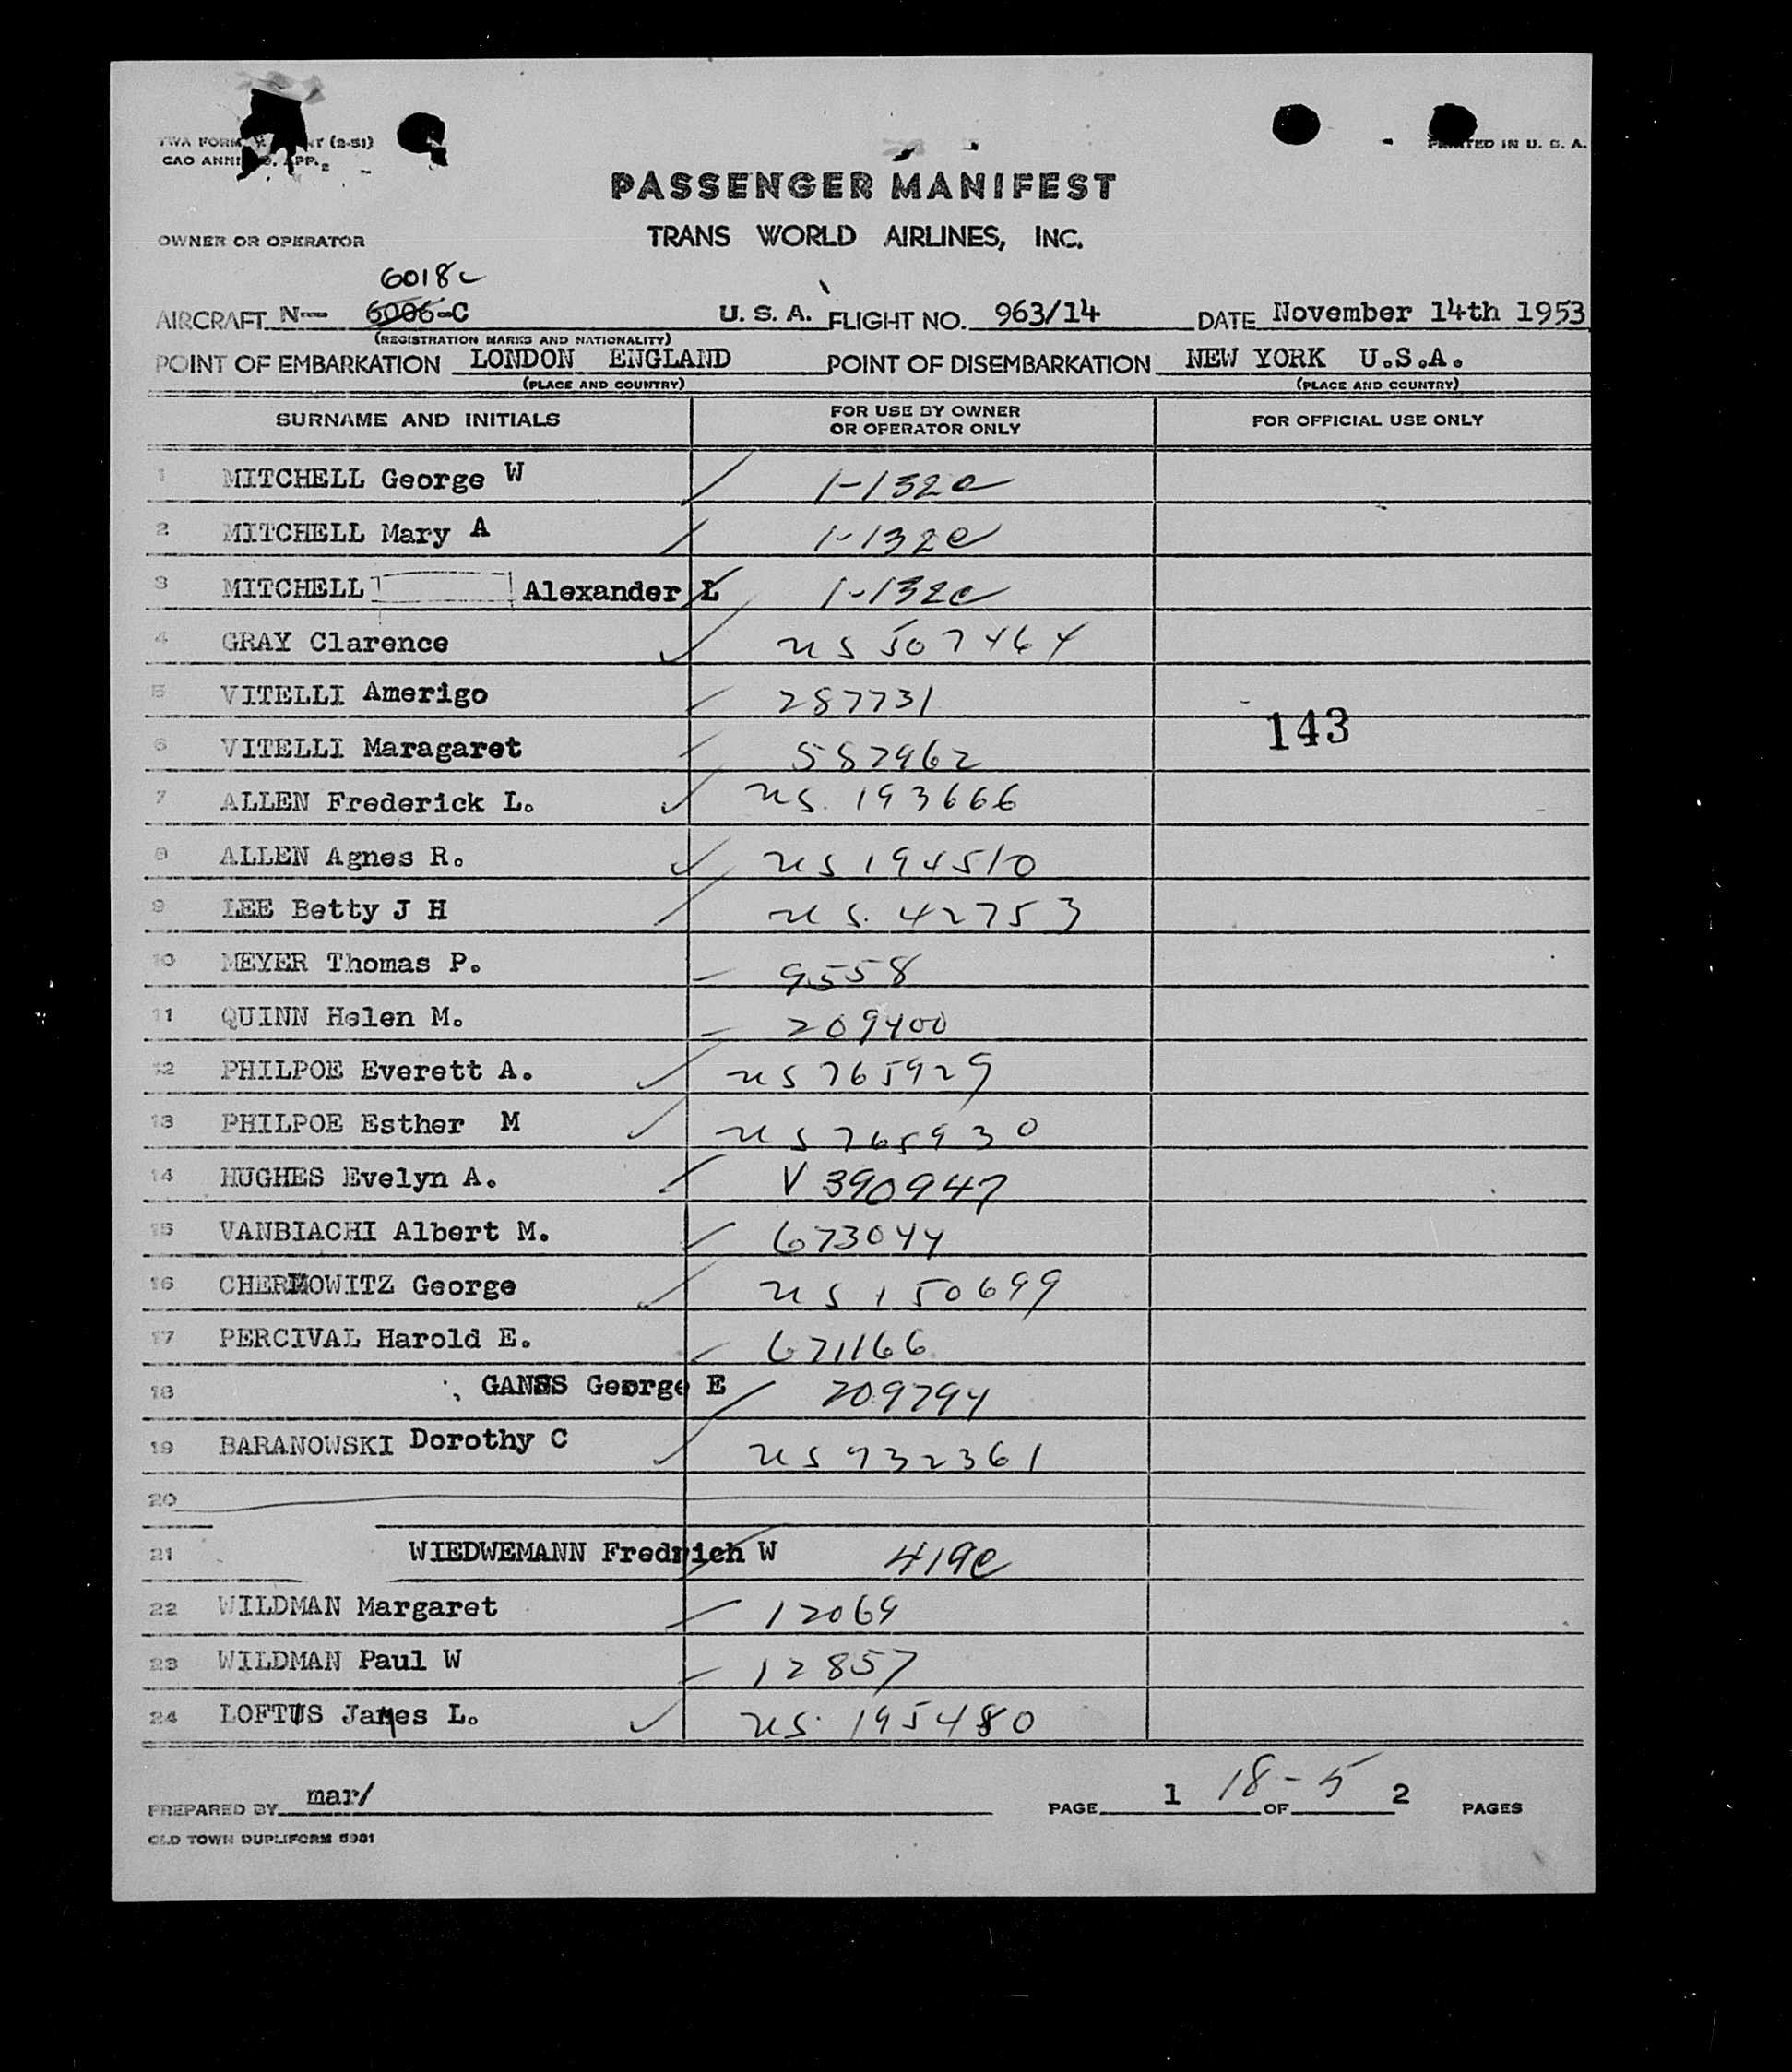 TWA FORM (2-51)
CAO ANN APP. 2
PRINTED IN U. S. A.
PASSENGER MANIFEST
OWNER OR OPERATOR
TRANS WORLD AIRLINES, INC.
6018c
AIRCRAFT N-- 6006-C U. S. A. FLIGHT NO. 963/14 DATE November 14th 1953
(REGISTRATION MARKS AND NATIONALITY)
POINT OF EMBARKATION LONDON ENGLAND POINT OF DISEMBARKATION NEW YORK U.S.A.
(PLACE AND COUNTRY) (PLACE AND COUNTRY)
SURNAME AND INITIALS FOR USE BY OWNER OR OPERATOR ONLY FOR OFFICIAL USE ONLY
1 MITCHELL George W 1-132c
2 MITCHELL Mary A 1-132c
3 MITCHELL Alexander L 1-132c
4 GRAY Clarence us 507464
5 VITELLI Amerigo 287731
143
6 VITELLI Maragaret 587962
7 ALLEN Frederick L. us. 193666
8 ALLEN Agnes R. us 194510
9 LEE Betty J H us. 42753
10 MEYER Thomas P. 9558
11 QUINN Helen M. 209400
12 PHILPOE Everett A. us 765929
13 PHILPOE Esther M us 765930
14 HUGHES Evelyn A. V 390947
15 VANBIACHI Albert M. 673044
16 CHERMOWITZ George us 150699
17 PERCIVAL Harold E. 671166
18 GANSS George E 209794
19 BARANOWSKI Dorothy C us 932361
20
21 WIEDWEMANN Fredrich W 419c
22 WILDMAN Margaret 12069
23 WILDMAN Paul W 12857
24 LOFTUS James L. us. 195480
PREPARED BY mar/ PAGE 1 18-5 OF 2 PAGES
OLD TOWN DUPLIFORM 5981